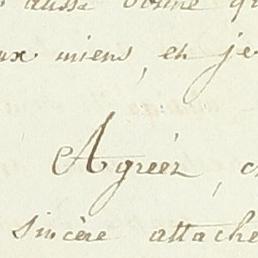 aussi bonne qu
ux miens, en je
Agréez, c
sincère attache